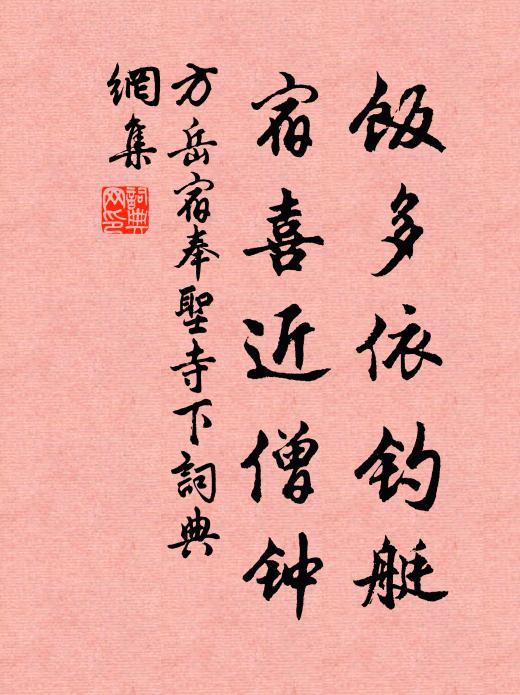 飯多依钓艇
宿喜近僧钟
方岳宿奉聖寺下詞典
網集
詞典网印